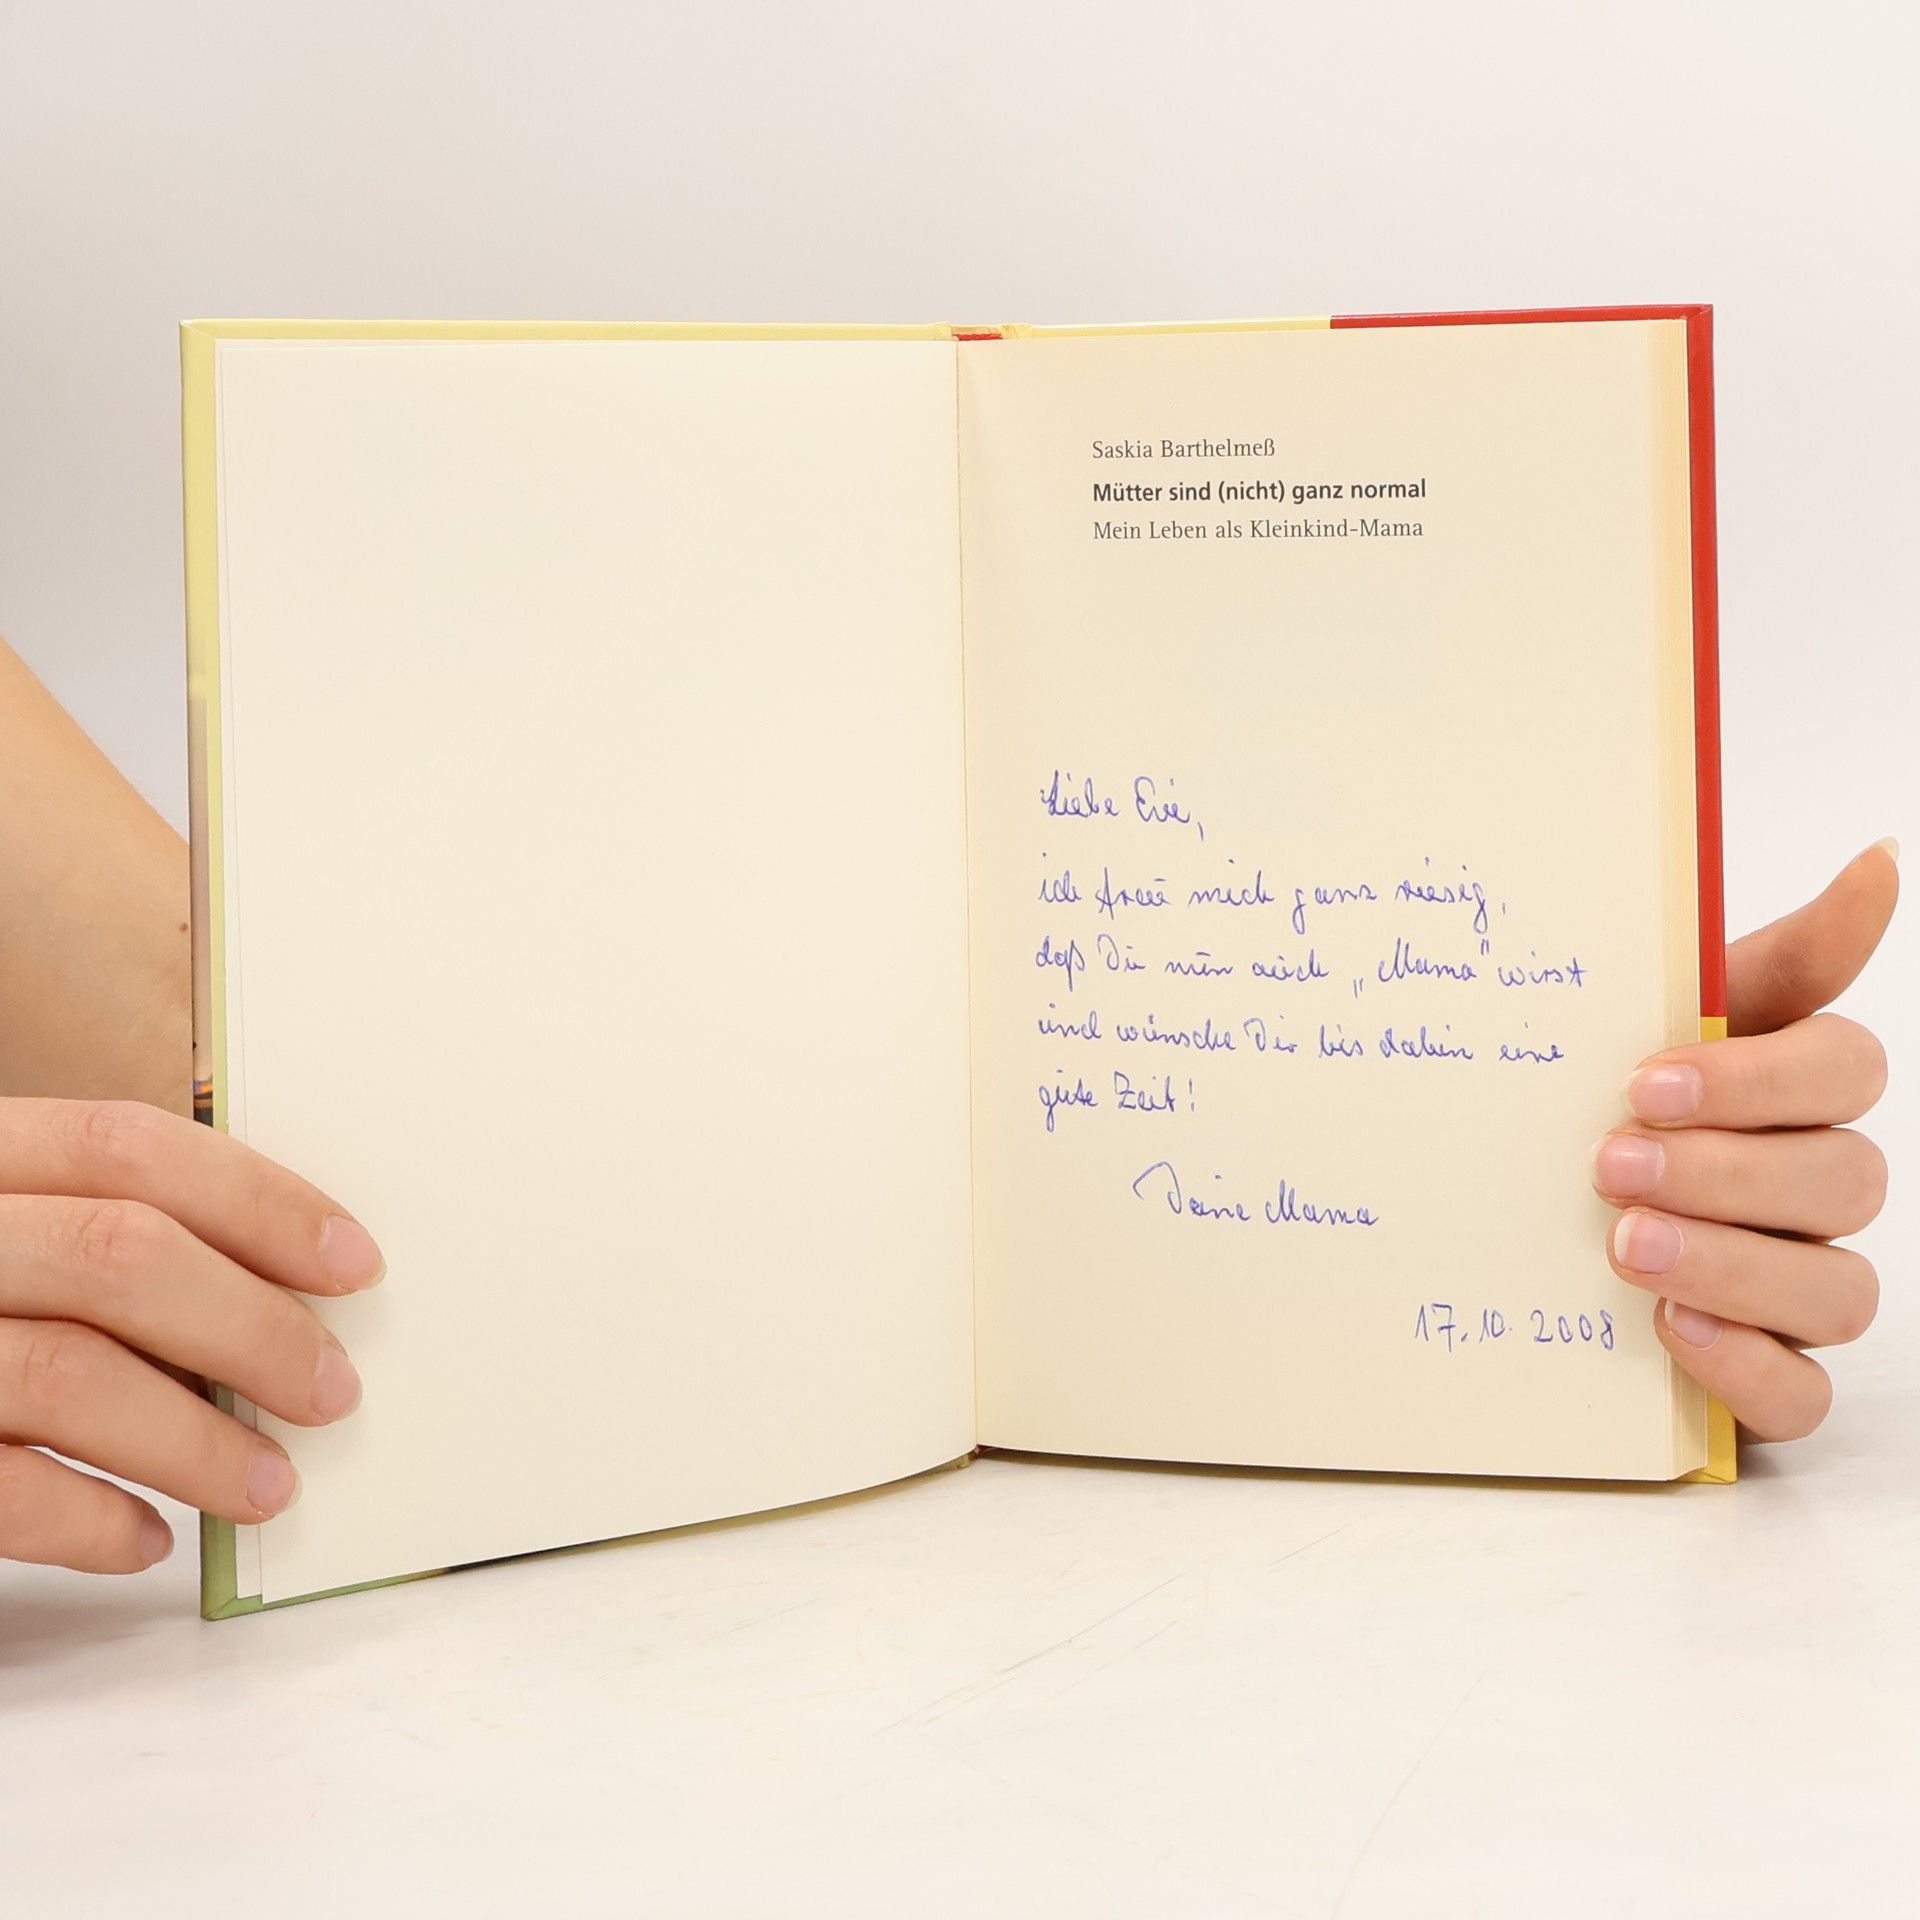 Saskia Barthelmeß
Mütter sind (nicht) ganz normal
Mein Leben als Kleinkind-Mama
Liebe Evi,
ich freu mich ganz riesig,
daß Du nun auch „Mama" wirst
und wünsche Dir bis dahin eine
gute Zeit!
Deine Mama
17.10.2008